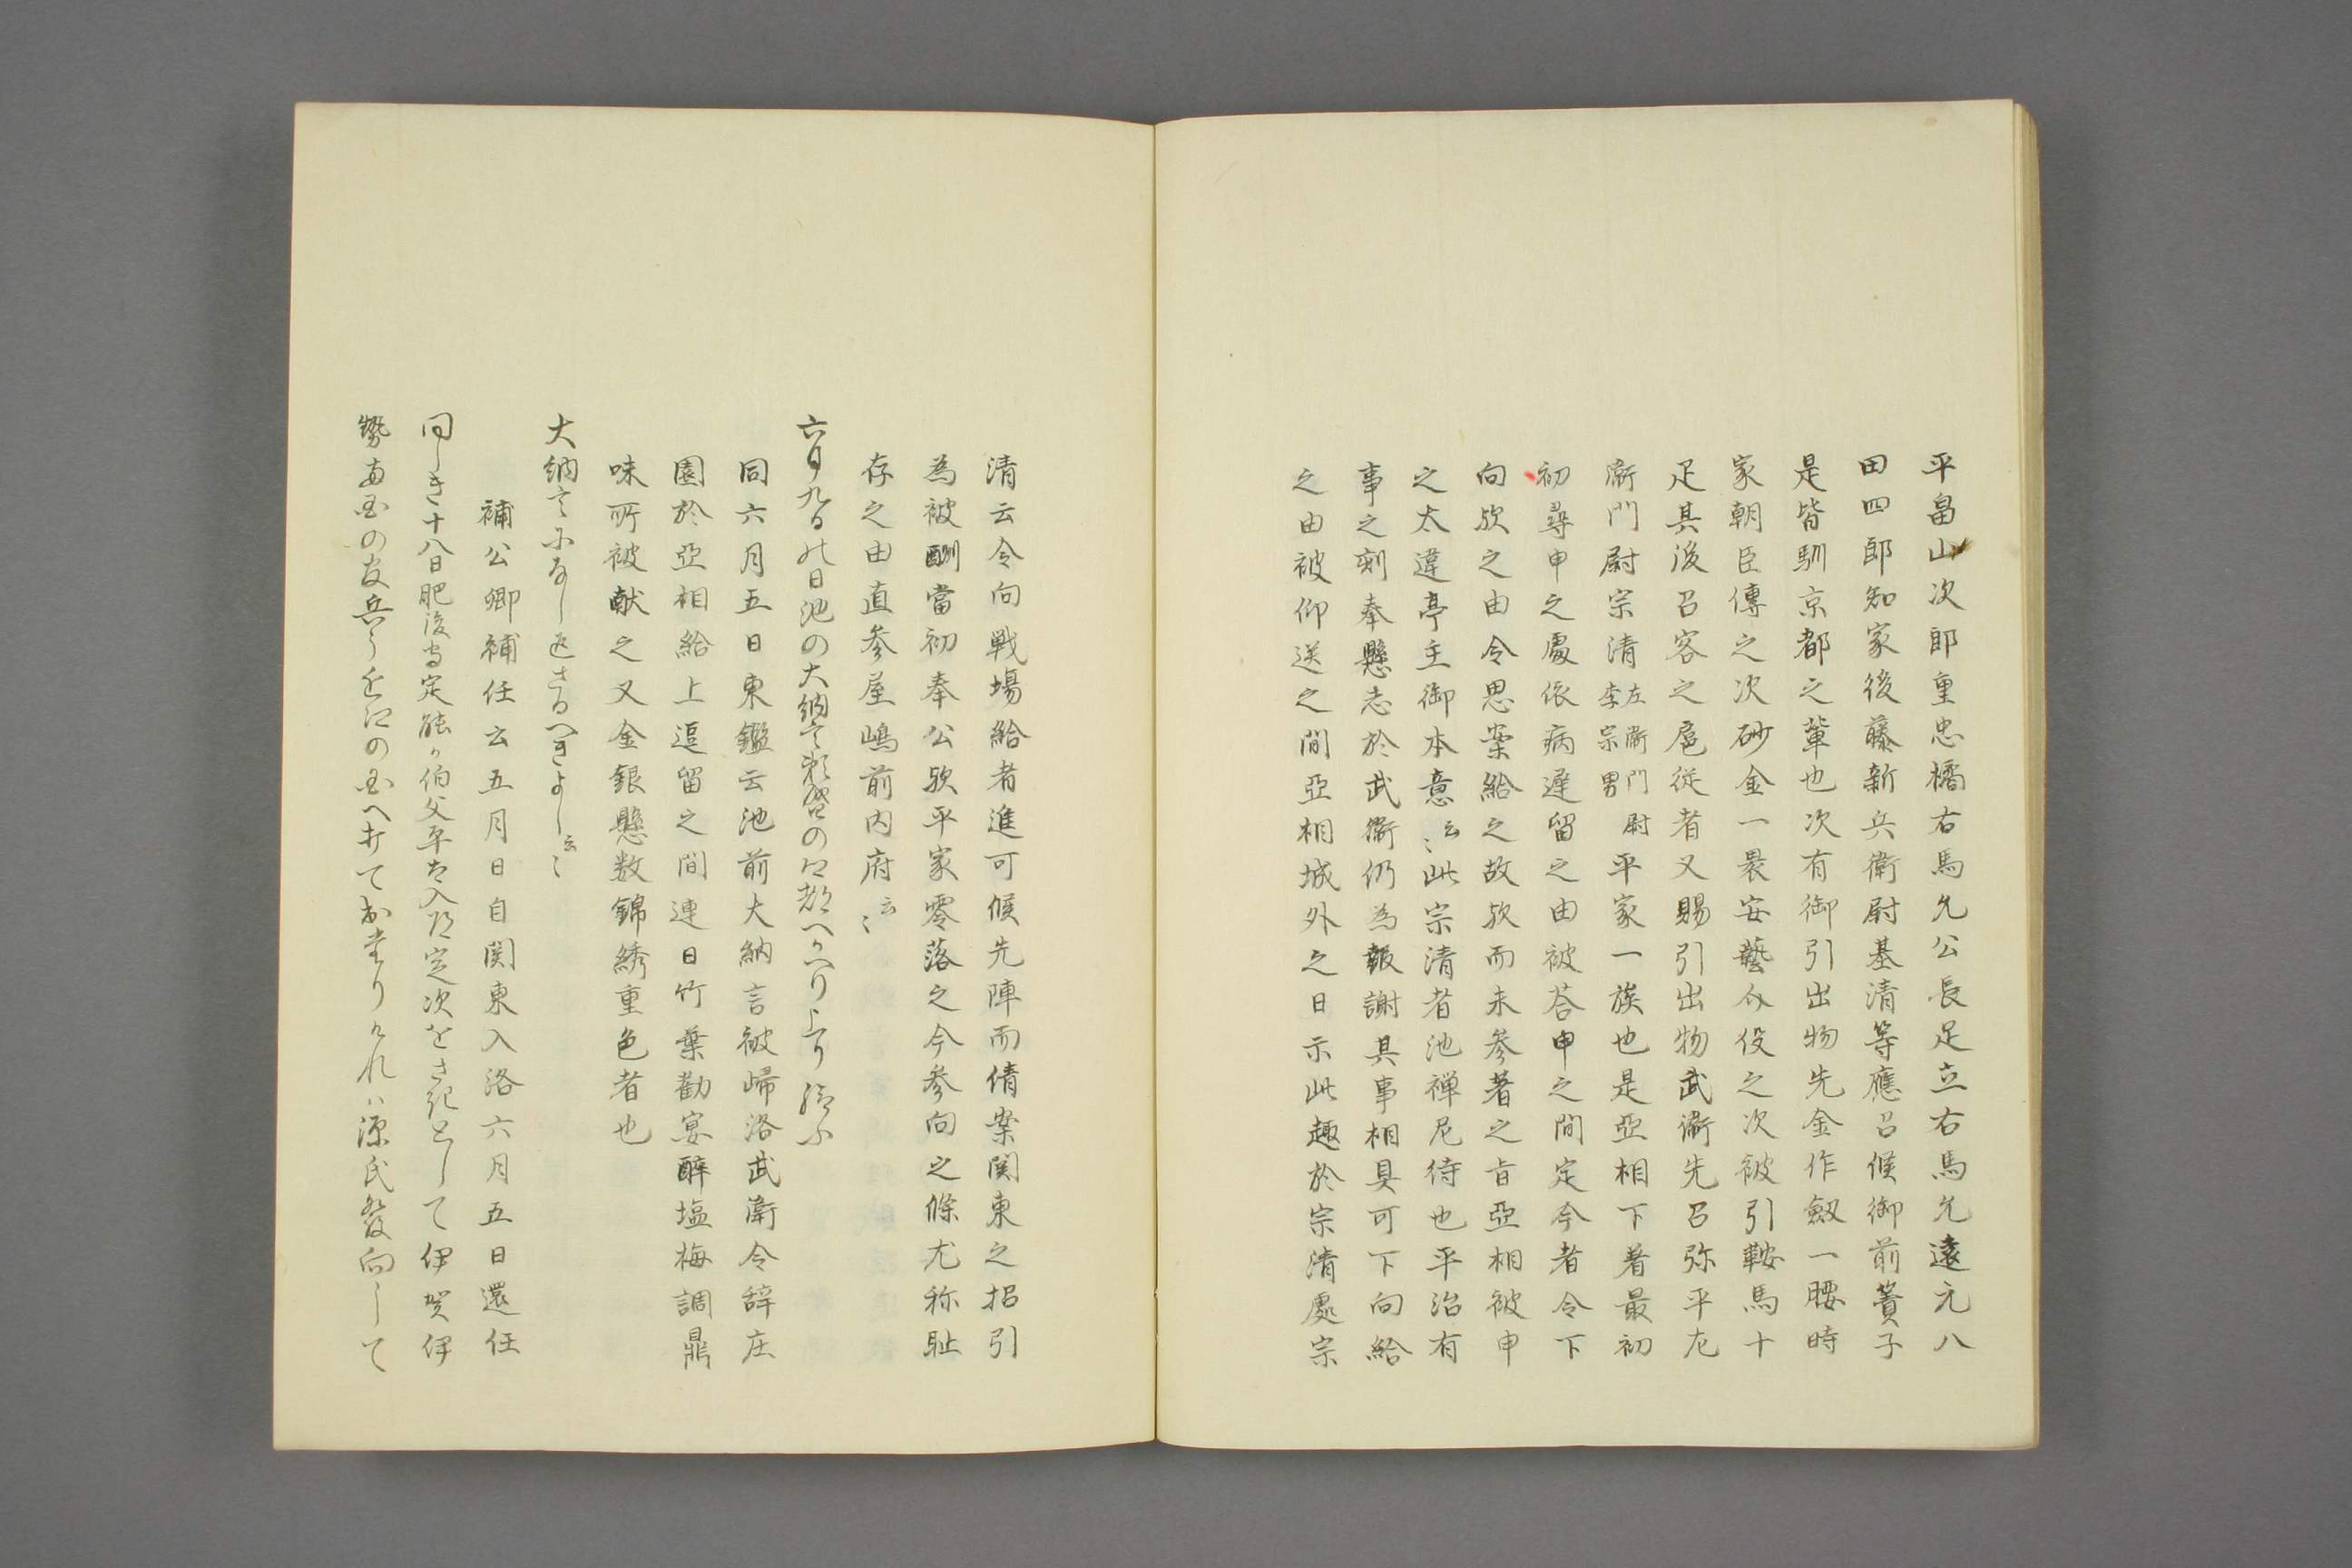 平畠山次郎重忠橘右馬允公長足立右馬允遠元八
田四郎知家後藤新兵衛尉基清等應召候御前簀子
是皆馴京都之輩也次有御引出物先金作釼一腰時
家朝臣傳之次砂金一褁安藝介役之次被引鞍馬十
疋其後召客之扈従者又賜引出物武衛先召弥平左
衛門尉宗清左衛門尉季宗男平家一族也是亞相下著最初
初尋申之處依病遅留之由被荅申之間定今者令下
向欤之由令思案給之故欤而未参著之旨亞相被申
之太違亭主御本意云〻此宗清者池禅尼侍也平治有
事之刻奉懸志於武衛仍為報謝其事相具可下向給
之由被仰送之間亞相城外之日示此趣於宗清處宗
清云令向戦場給者進可候先陣而倩案関東之招引
為被酬當初奉公欤平家零落之今参向之條尤称耻
存之由直参屋嶋前内府云〻
六月九日の日池の大納言頼盛の卿都へかへり上り給ふ
同六月五日東鑑云池前大納言被帰洛武衛令辞庄
園於亞相給上逗留之間連日竹葉勸宴酔塩梅調鼎
味所被献之又金銀懸数錦綉重色者也
大納言になし返さるへきよし云〻
補公卿補任云五月日自関東入洛六月五日還任
同しき十八日肥後守定能か伯父平太入道定次をさきとして伊賀伊
勢両国の官兵ら近江の国へ打て出たりけれは源氏發向して